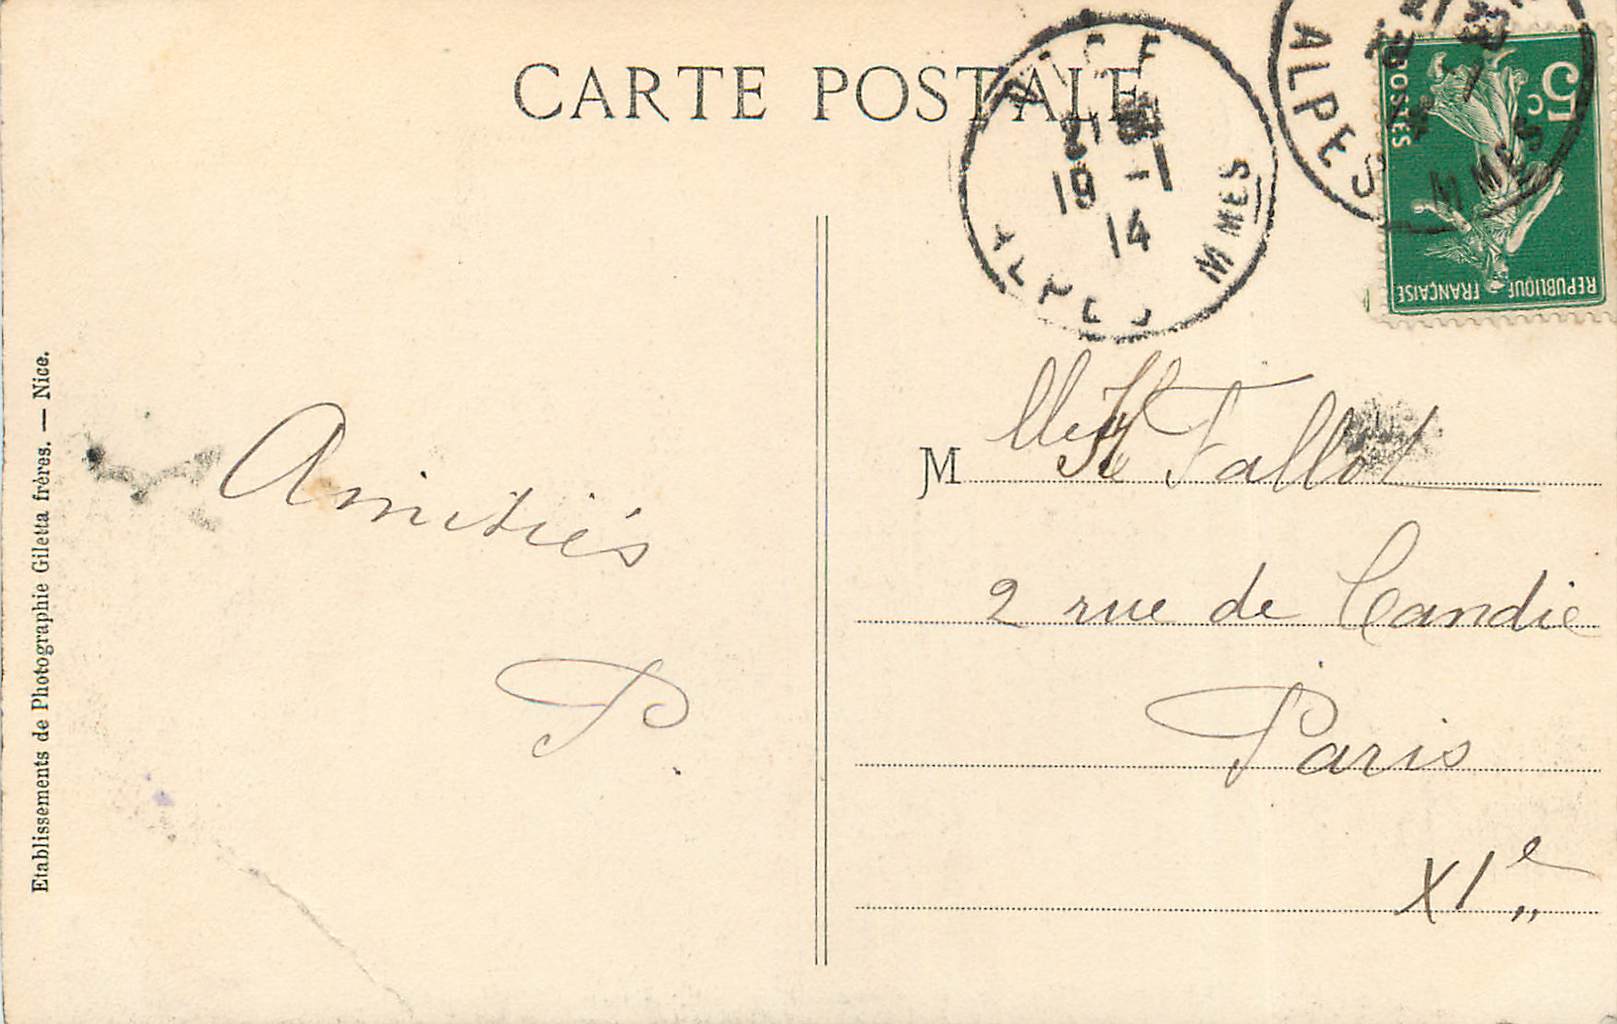 CARTE POSTALE
NICE
19 -1
14
ALPES MMES
ALPES MMES
POSTES
5c
REPUBLIQUE FRANÇAISE
Etablissements de Photographie Giletta frères. — Nice.
Amitiés
P.
M lle Fallot
2 rue de Candie
Paris
XIe